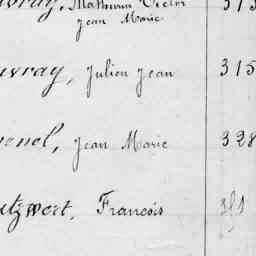 uvray, Mathurin Victor 313
Jean Marie
uvray, Julien Jean 315
onel, Jean Marie 328
utzwert, François